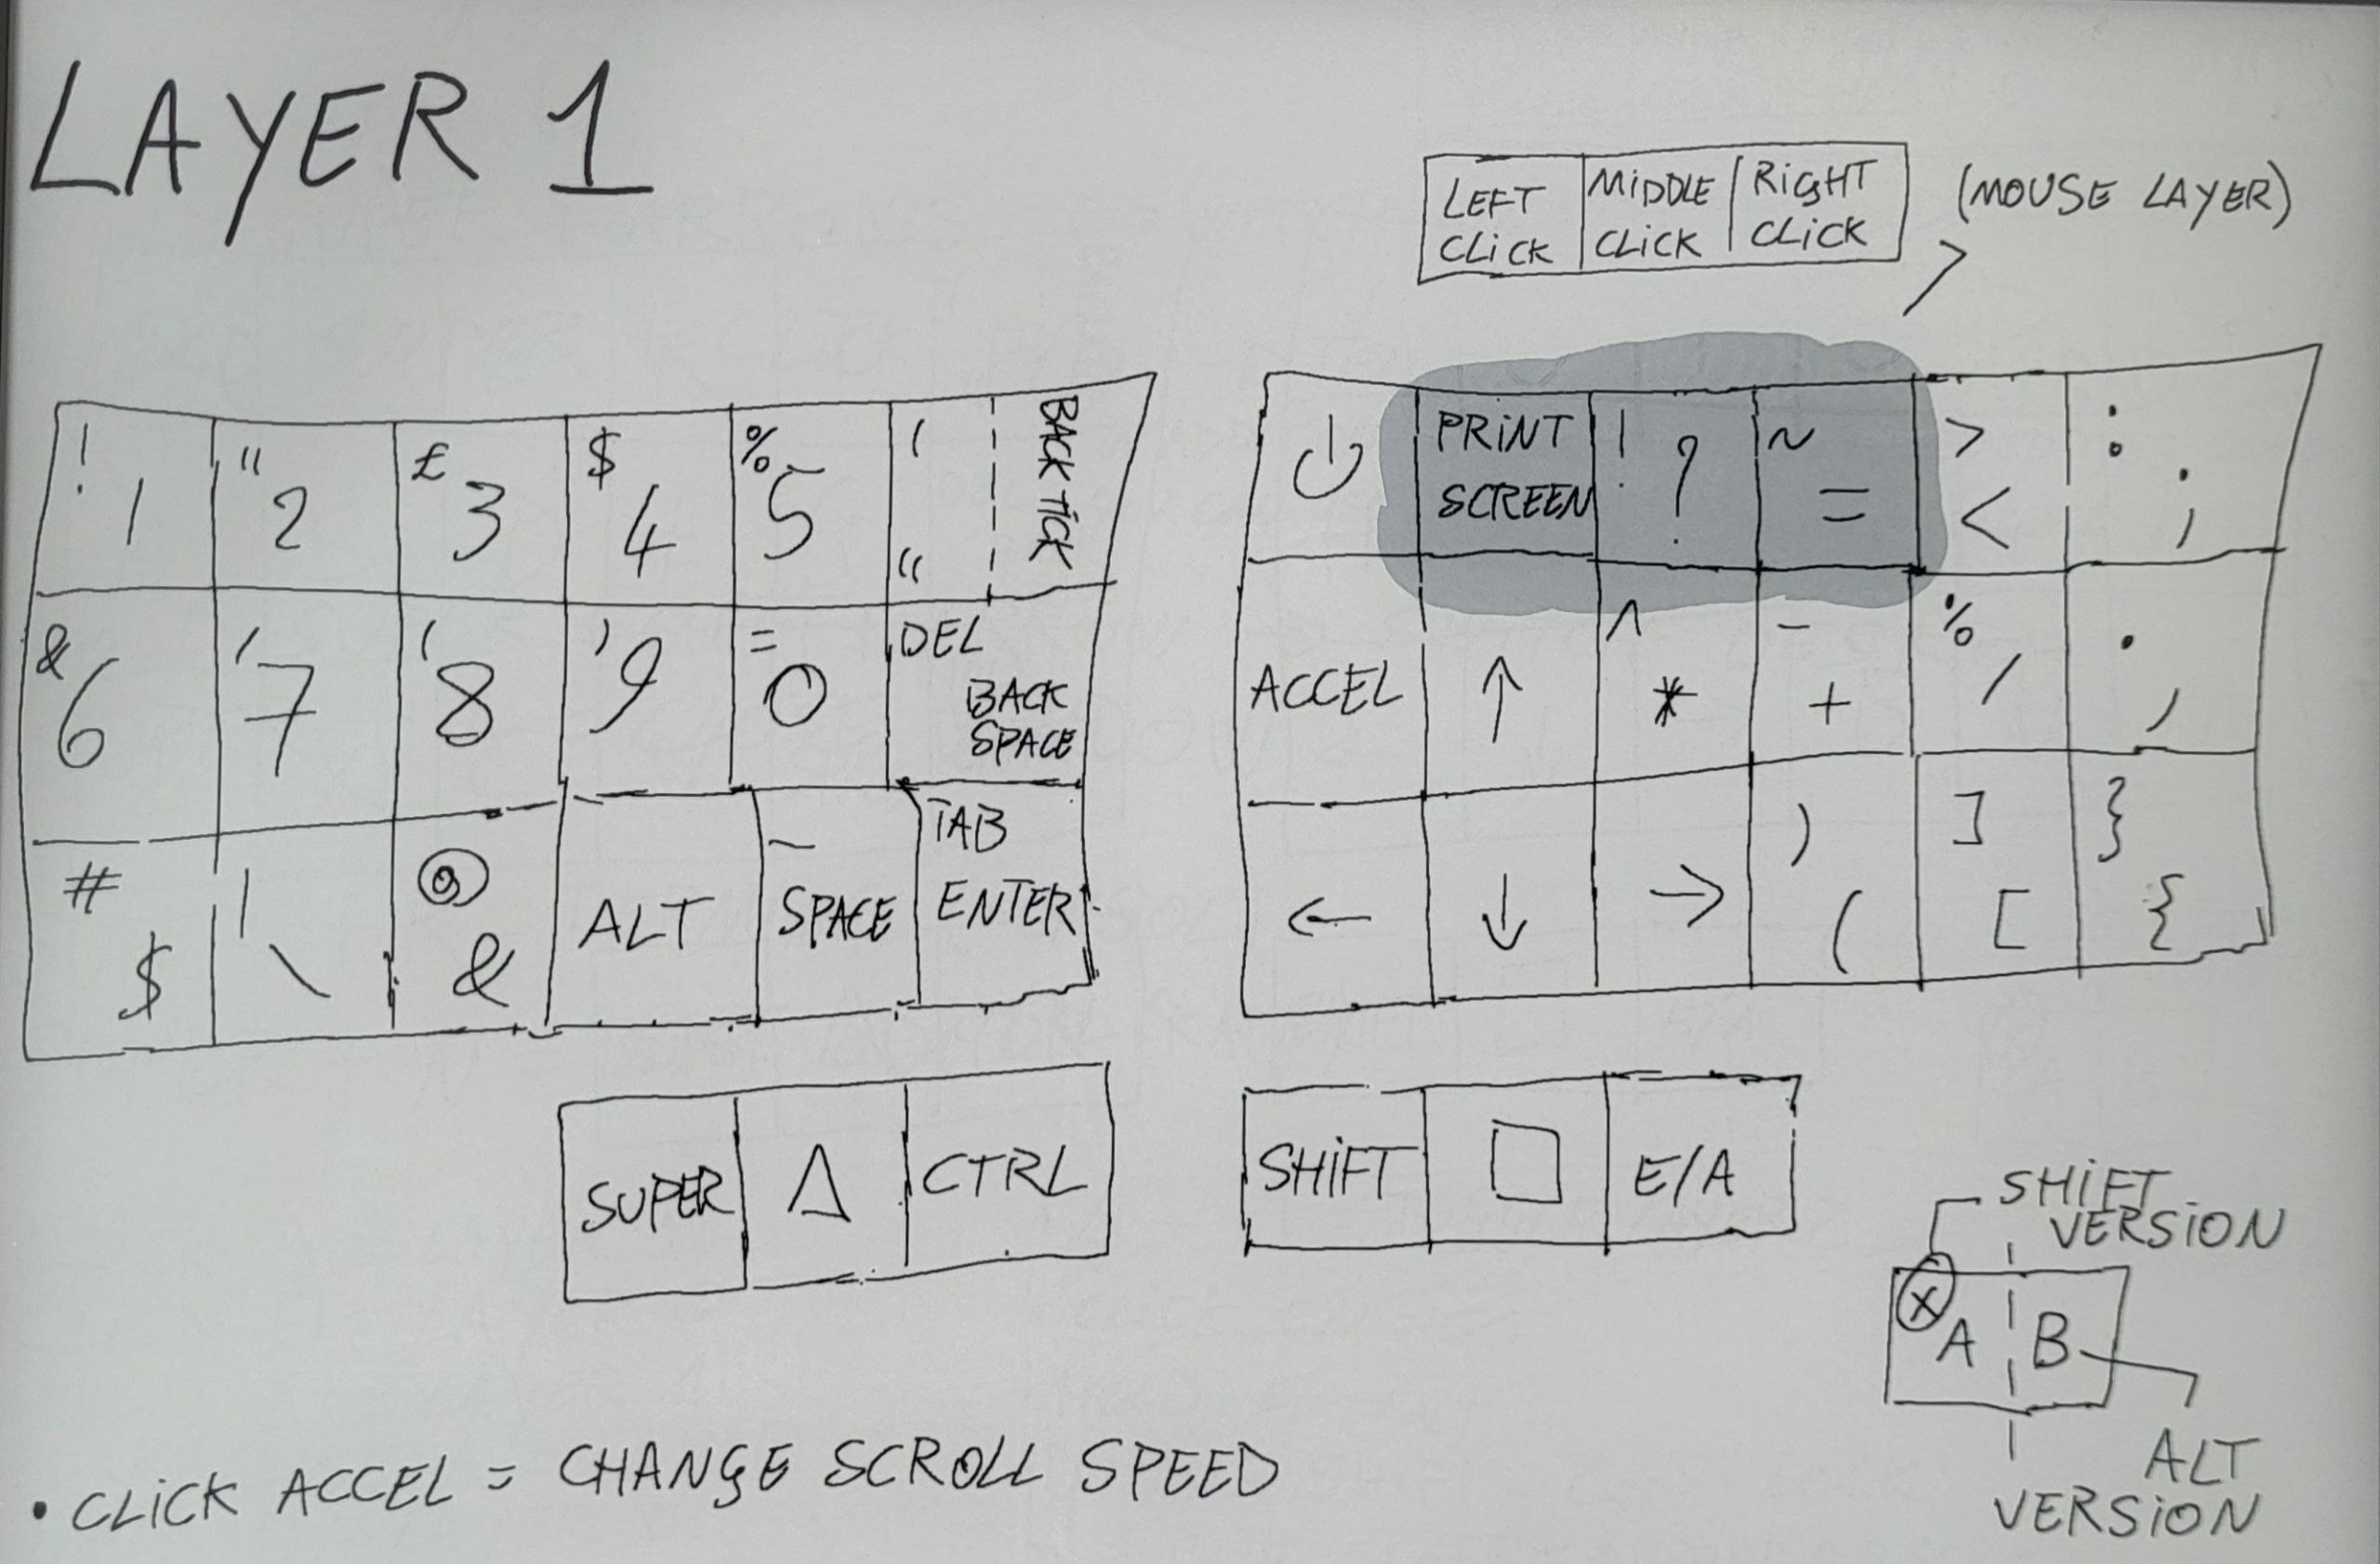 LAYER 1
LEFT CLICK MIDDLE CLICK RIGHT CLICK (MOUSE LAYER)
! 1 " 2 £ 3 $ 4 % 5 ' " BACK TICK
PRINT SCREEN ! ? ~ = > < : ;
& 6 / 7 ( 8 ) 9 = 0 DEL BACK SPACE
ACCEL ↑ ^ * - + % / . ,
# $ | \ @ & ALT _ SPACE TAB ENTER
← ↓ → ) ( ] [ } {
SUPER △ CTRL
SHIFT □ E/A
SHIFT
VERSION
X A B
ALT
VERSION
• CLICK ACCEL = CHANGE SCROLL SPEED